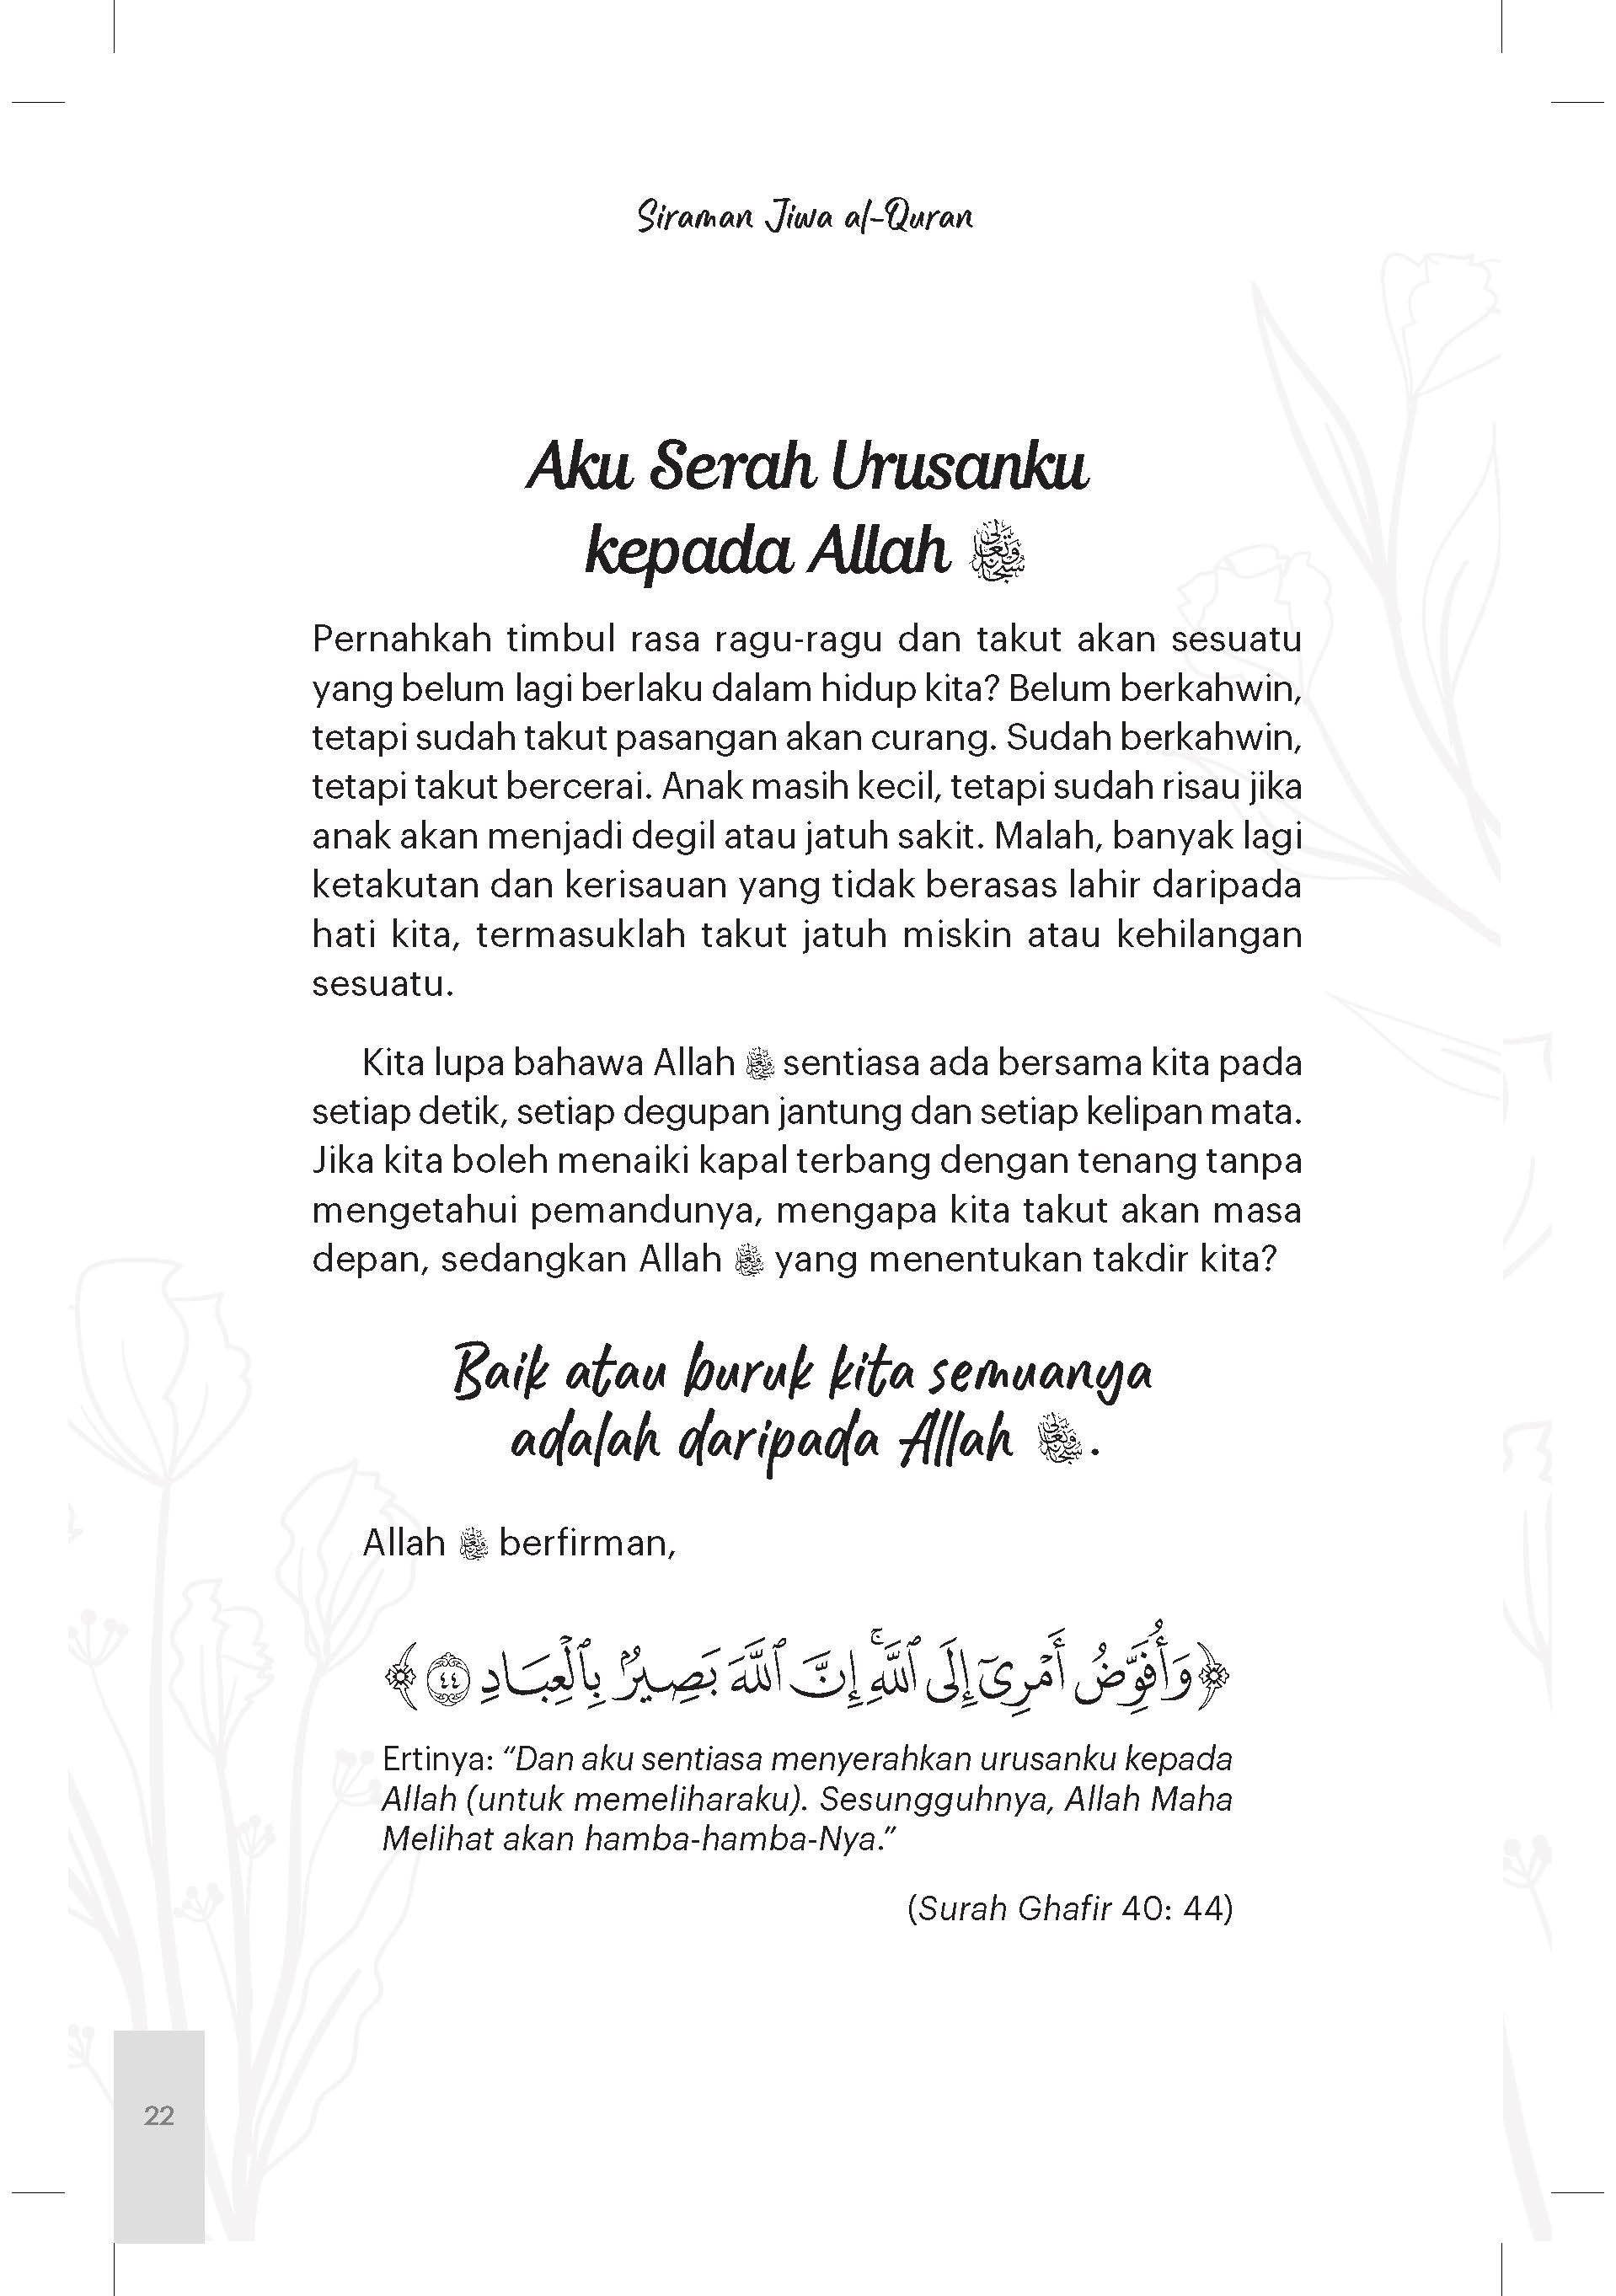 Siraman Jiwa al-Quran
Aku Serah Urusanku
kepada Allah سبحانه وتعالى
Pernahkah timbul rasa ragu-ragu dan takut akan sesuatu
yang belum lagi berlaku dalam hidup kita? Belum berkahwin,
tetapi sudah takut pasangan akan curang. Sudah berkahwin,
tetapi takut bercerai. Anak masih kecil, tetapi sudah risau jika
anak akan menjadi degil atau jatuh sakit. Malah, banyak lagi
ketakutan dan kerisauan yang tidak berasas lahir daripada
hati kita, termasuklah takut jatuh miskin atau kehilangan
sesuatu.
Kita lupa bahawa Allah سبحانه وتعالى sentiasa ada bersama kita pada
setiap detik, setiap degupan jantung dan setiap kelipan mata.
Jika kita boleh menaiki kapal terbang dengan tenang tanpa
mengetahui pemandunya, mengapa kita takut akan masa
depan, sedangkan Allah سبحانه وتعالى yang menentukan takdir kita?
Baik atau buruk kita semuanya
adalah daripada Allah سبحانه وتعالى.
Allah سبحانه وتعالى berfirman,
﴿وَأُفَوِّضُ أَمْرِىٓ إِلَى ٱللَّهِ ۚ إِنَّ ٱللَّهَ بَصِيرٌۢ بِٱلْعِبَادِ ٤٤﴾
Ertinya: “Dan aku sentiasa menyerahkan urusanku kepada
Allah (untuk memeliharaku). Sesungguhnya, Allah Maha
Melihat akan hamba-hamba-Nya.”
(Surah Ghafir 40: 44)
22